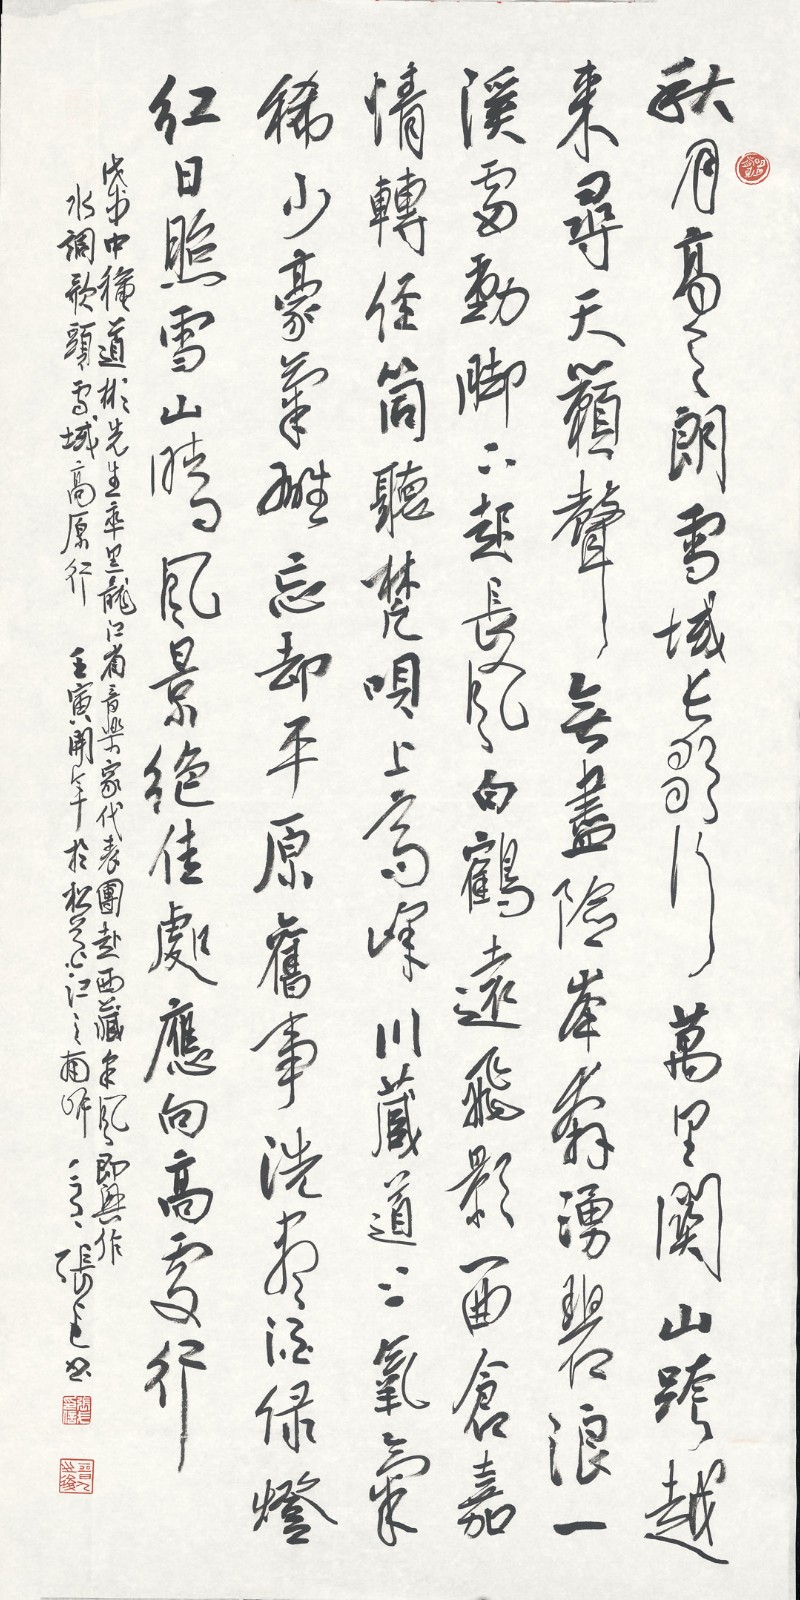 秋月高高朗雪域長影行萬里關山跨越
來尋天籟聲無盡險峯奔湧碧浪一
溪雷動脚下起長風白鶴遠飛影一曲倉嘉
情轉經筒聽梵唄上高峰川藏道上氧氣
稀少豪氣難忘却平原舊事洗盡酒緑燈
紅日照雪山晴風景絶佳處應向高處行
戊戌中穐道彬先生率黑龍江省音樂家代表團赴西藏采風即興作
水調歌頭雪域高原行 壬寅開年於松花江之南岸 張